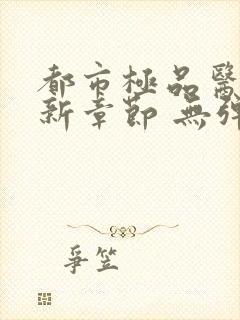 都市極品醫
新章節 無彈
爭笠